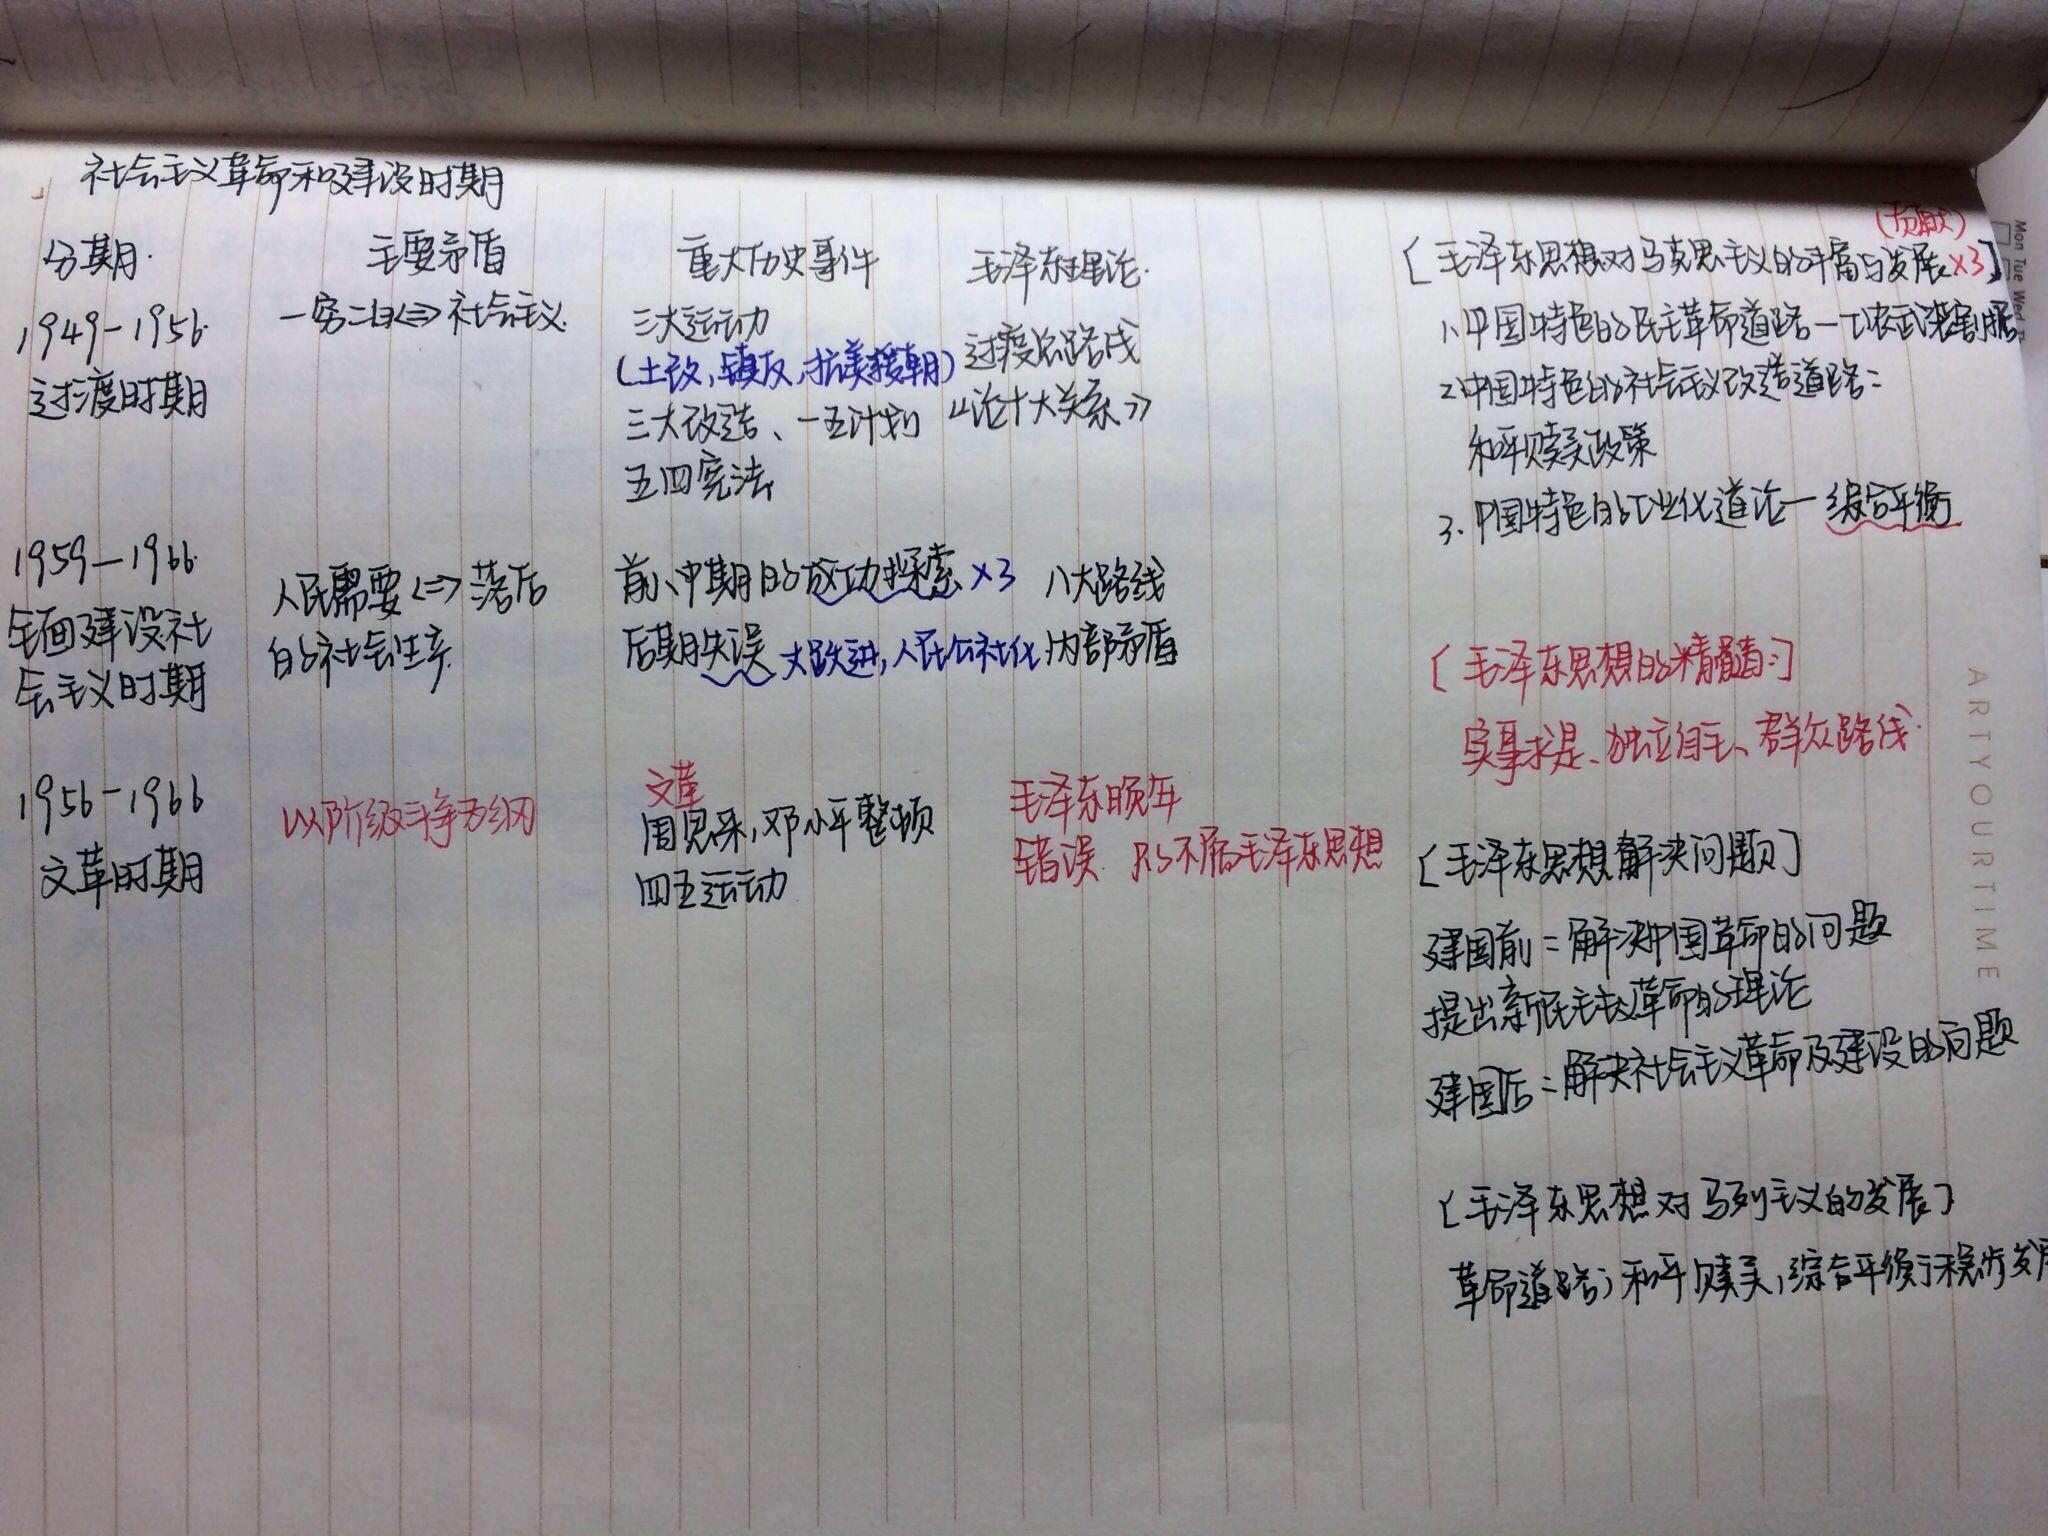 社会主义革命和建设时期
分期.
主要矛盾
重大历史事件
毛泽东理论.
1949-1956.
过渡时期
一穷二白<=>社会主义.
三大运动
(土改,镇反,抗美援朝)
三大改造、一五计划
五四宪法
过渡总路线
《论十大关系》
1959-1966.
全面建设社
会主义时期
人民需要<=>落后
的社会生产.
前、中期的成功探索 ×3
后期失误 大跃进,人民公社化
八大路线
内部矛盾
1956-1966
文革时期
以阶级斗争为纲
文革
周恩来,邓小平整顿
四五运动
毛泽东晚年
错误. 不属毛泽东思想
(贡献)
[毛泽东思想对马克思主义的丰富与发展 ×3]
1、中国特色的民主革命道路—工农武装割据
2、中国特色的社会主义改造道路:
和平赎买政策
3、中国特色的工业化道论—综合平衡
[毛泽东思想的精髓:]
实事求是、独立自主、群众路线.
[毛泽东思想解决问题]
建国前:解决中国革命的问题
提出新民主主义革命的理论
建国后:解决社会主义革命及建设的问题
[毛泽东思想对马列主义的发展]
革命道路;和平赎买,综合平衡;稳步发展
ARTYOURTIME
Mon Tue Wed